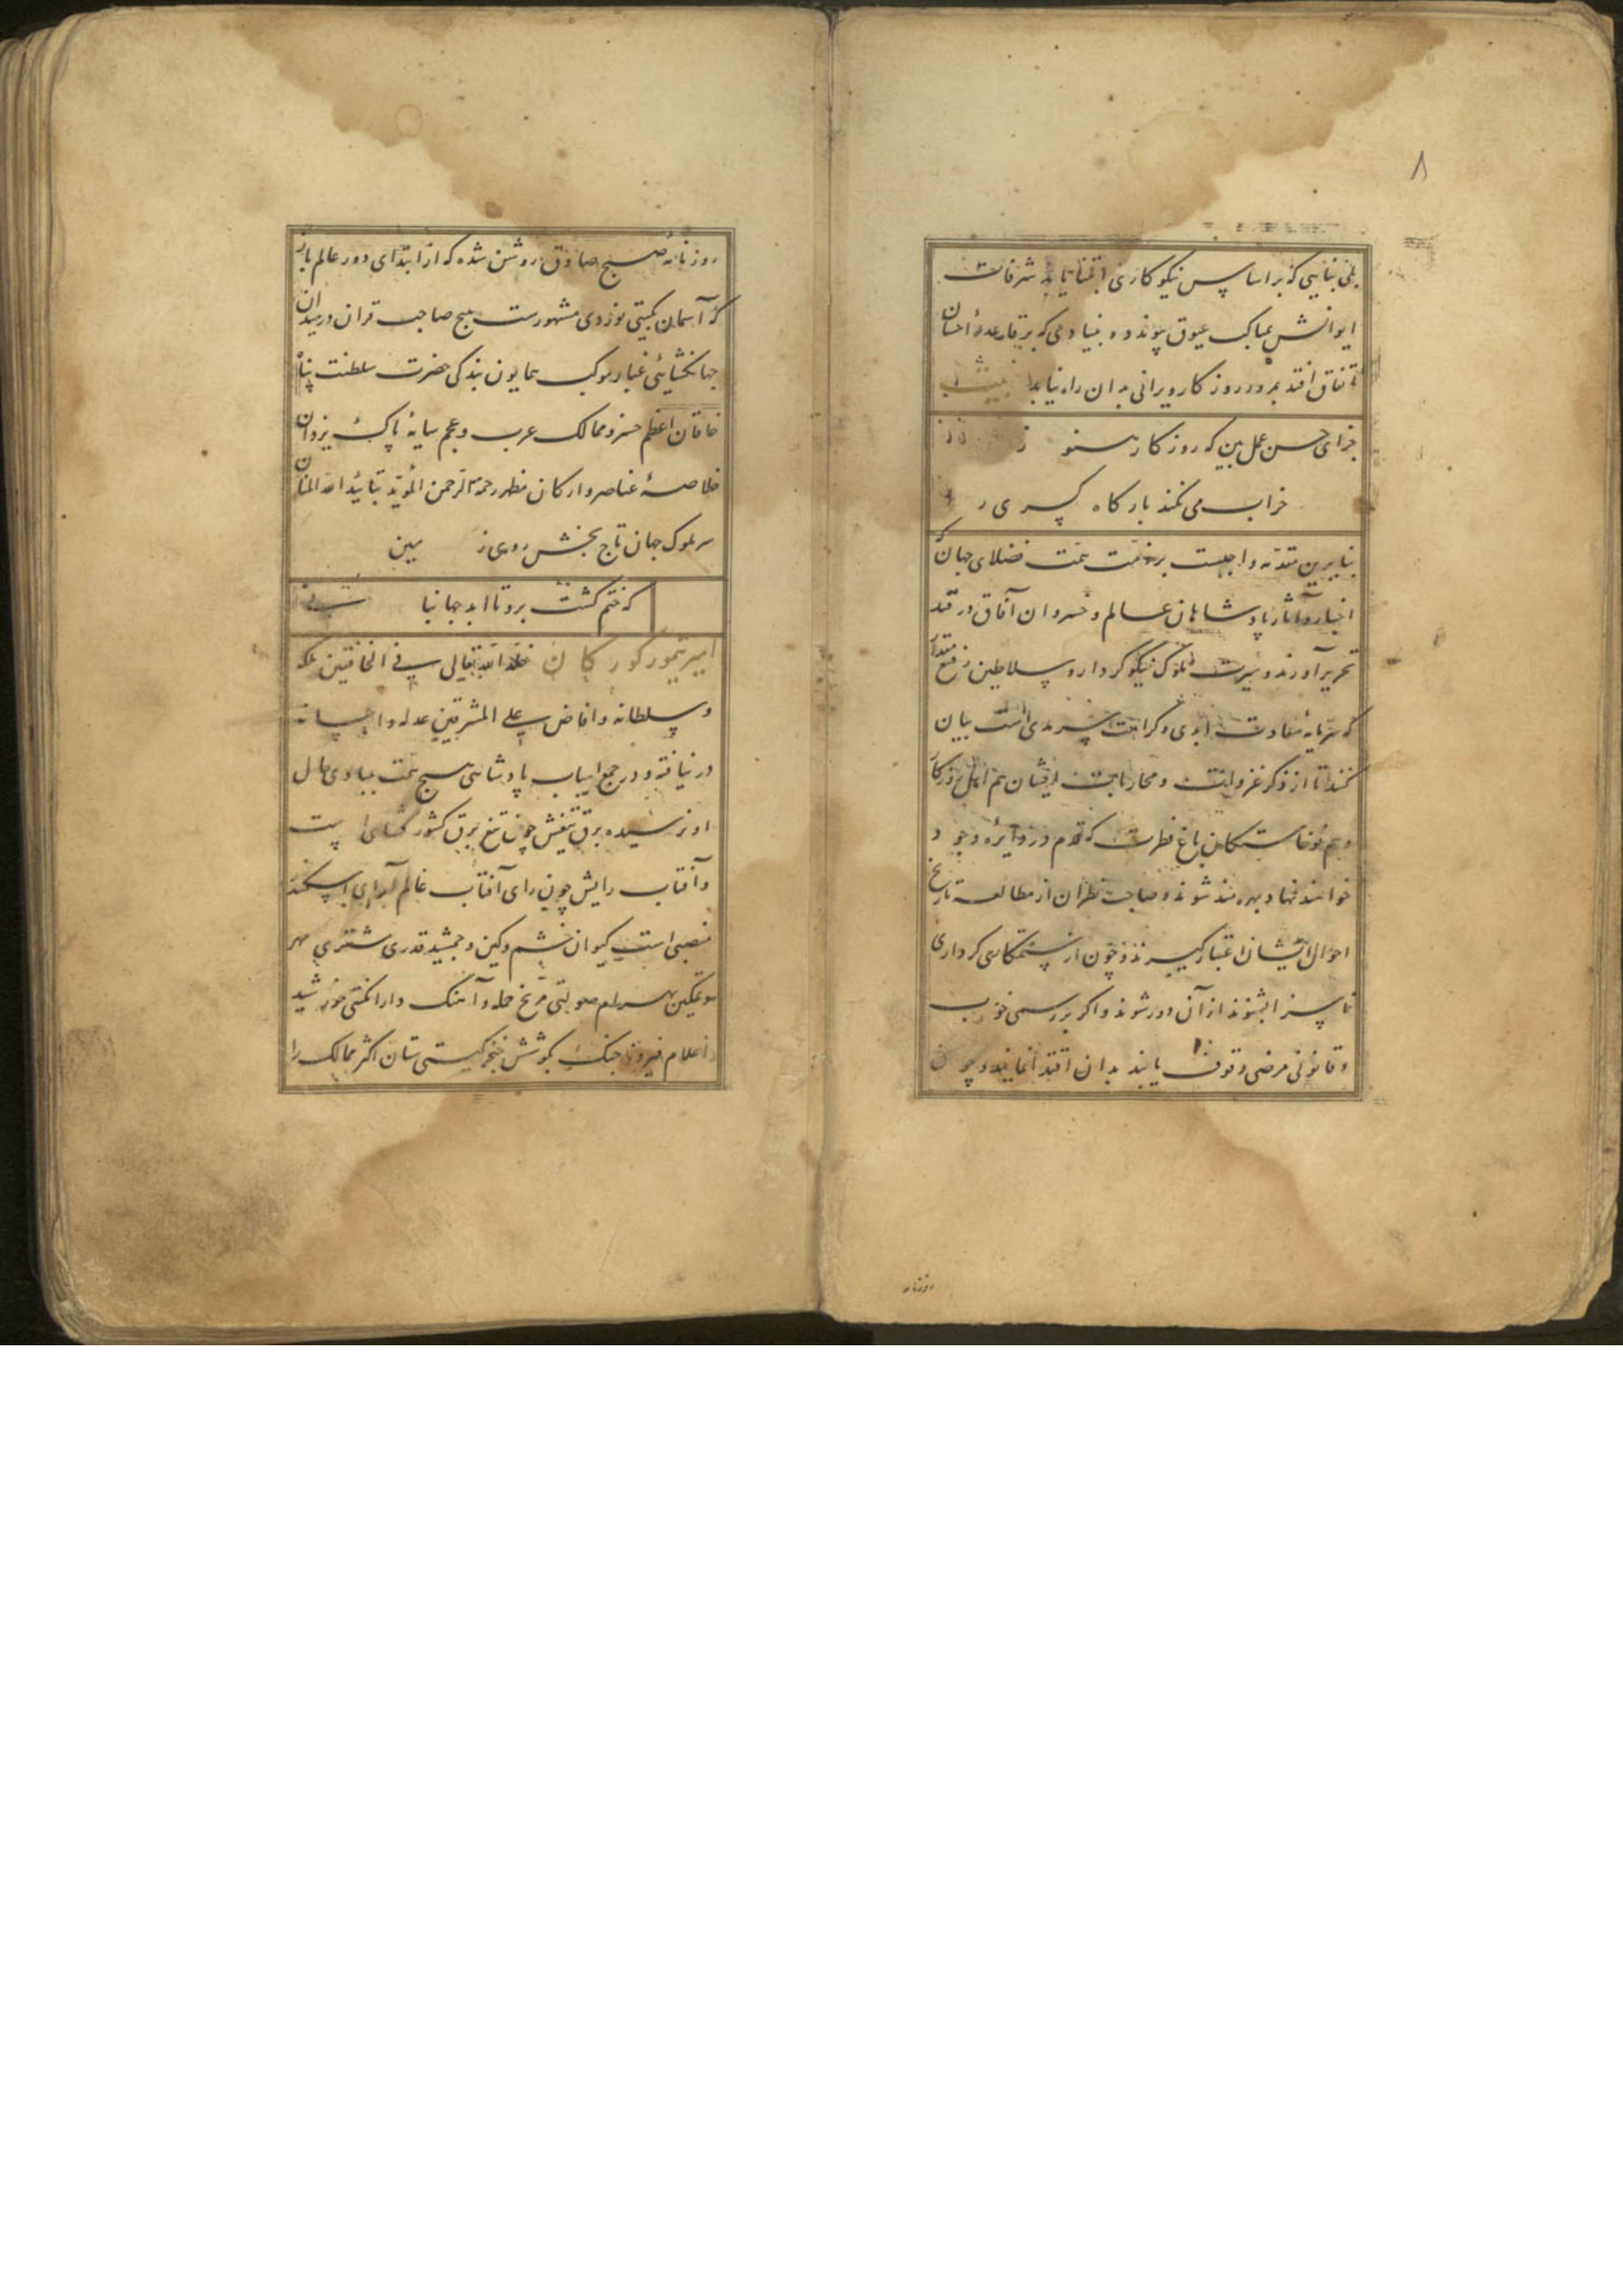 ۸
بلی بنایی که بر اساس نیکوکاری ابتنا یابد شرفات
ایوانش بماک عیوق پیوندد و بنیادی که بر قاعدهٔ احسان
اتفاق افتد بمرور روزگار ویرانی بدان راه نیابد بیت
جزای حسن عمل بین که روزگار هنوز
خراب می نکند بارگاه کسری را
بنابرین مقدمه واجبست بر ذمت همت فضلای جهان که
اخبار و آثار پادشاهان عالم و خسروان آفاق در قید
تحریر آورند و سیرت ملوک نیکوکردار و سلاطین رفیع مقدار
که سرمایهٔ سعادت ابدی و کرامت سرمدی است بیان
کنند تا از ذکر غزوات و محاربات ایشان هم اهل روزگار
و هم نوخاستگان باغ فطرت که قدم در دایرهٔ وجود
خواهند نهاد بهره‌مند شوند و صاحب نظران از مطالعه تاریخ
احوال ایشان اعتبار گیرند و چون از ستمکاری کرداری
ناسزا بشنوند از آن دور شوند و اگر بر رسمی خوب
و قانونی مرضی وقوف یابند بدان اقتدا نمایند و چون
روزنامه
روزنامهٔ صبح صادق روشن شده که از ابتدای دور عالم باز
که آسمان بگیتی نوردی مشهورست هیچ صاحب قران در میدان
جهانگشایی غبار موکب همایون بندگی حضرت سلطنت پناه
خاقان اعظم خسرو ممالک عرب و عجم سایهٔ پاک یزدان
خلاصهٔ عناصر و ارکان مظهر رحمة الرحمن المؤید بتائید الله المنان
سر ملوک جهان تاج بخش روی زمین
که ختم گشت برو تا ابد جهانبانی
امیر تیمور گورکان خلد الله تعالی فی الخافقین ملکه
و سلطانه و افاض علی المشرقین عدله و احسانه
در نیافته و در جمع اسباب پادشاهی هیچ همت بمبادی حال
او نرسیده برق تیغش چون تیغ برق کشور گشای است
و آفتاب رایش چون رای آفتاب عالم آرای اسکندر
منصبی است کیوان خشم و کین و جمشید قدری مشتری مهر
و تمکین بهرام صولتی مریخ حمله و آهنگ دارا مکنتی خورشید
اعلام فیروز جنگ بکوشش خنجر گیتی ستان اکثر ممالک را